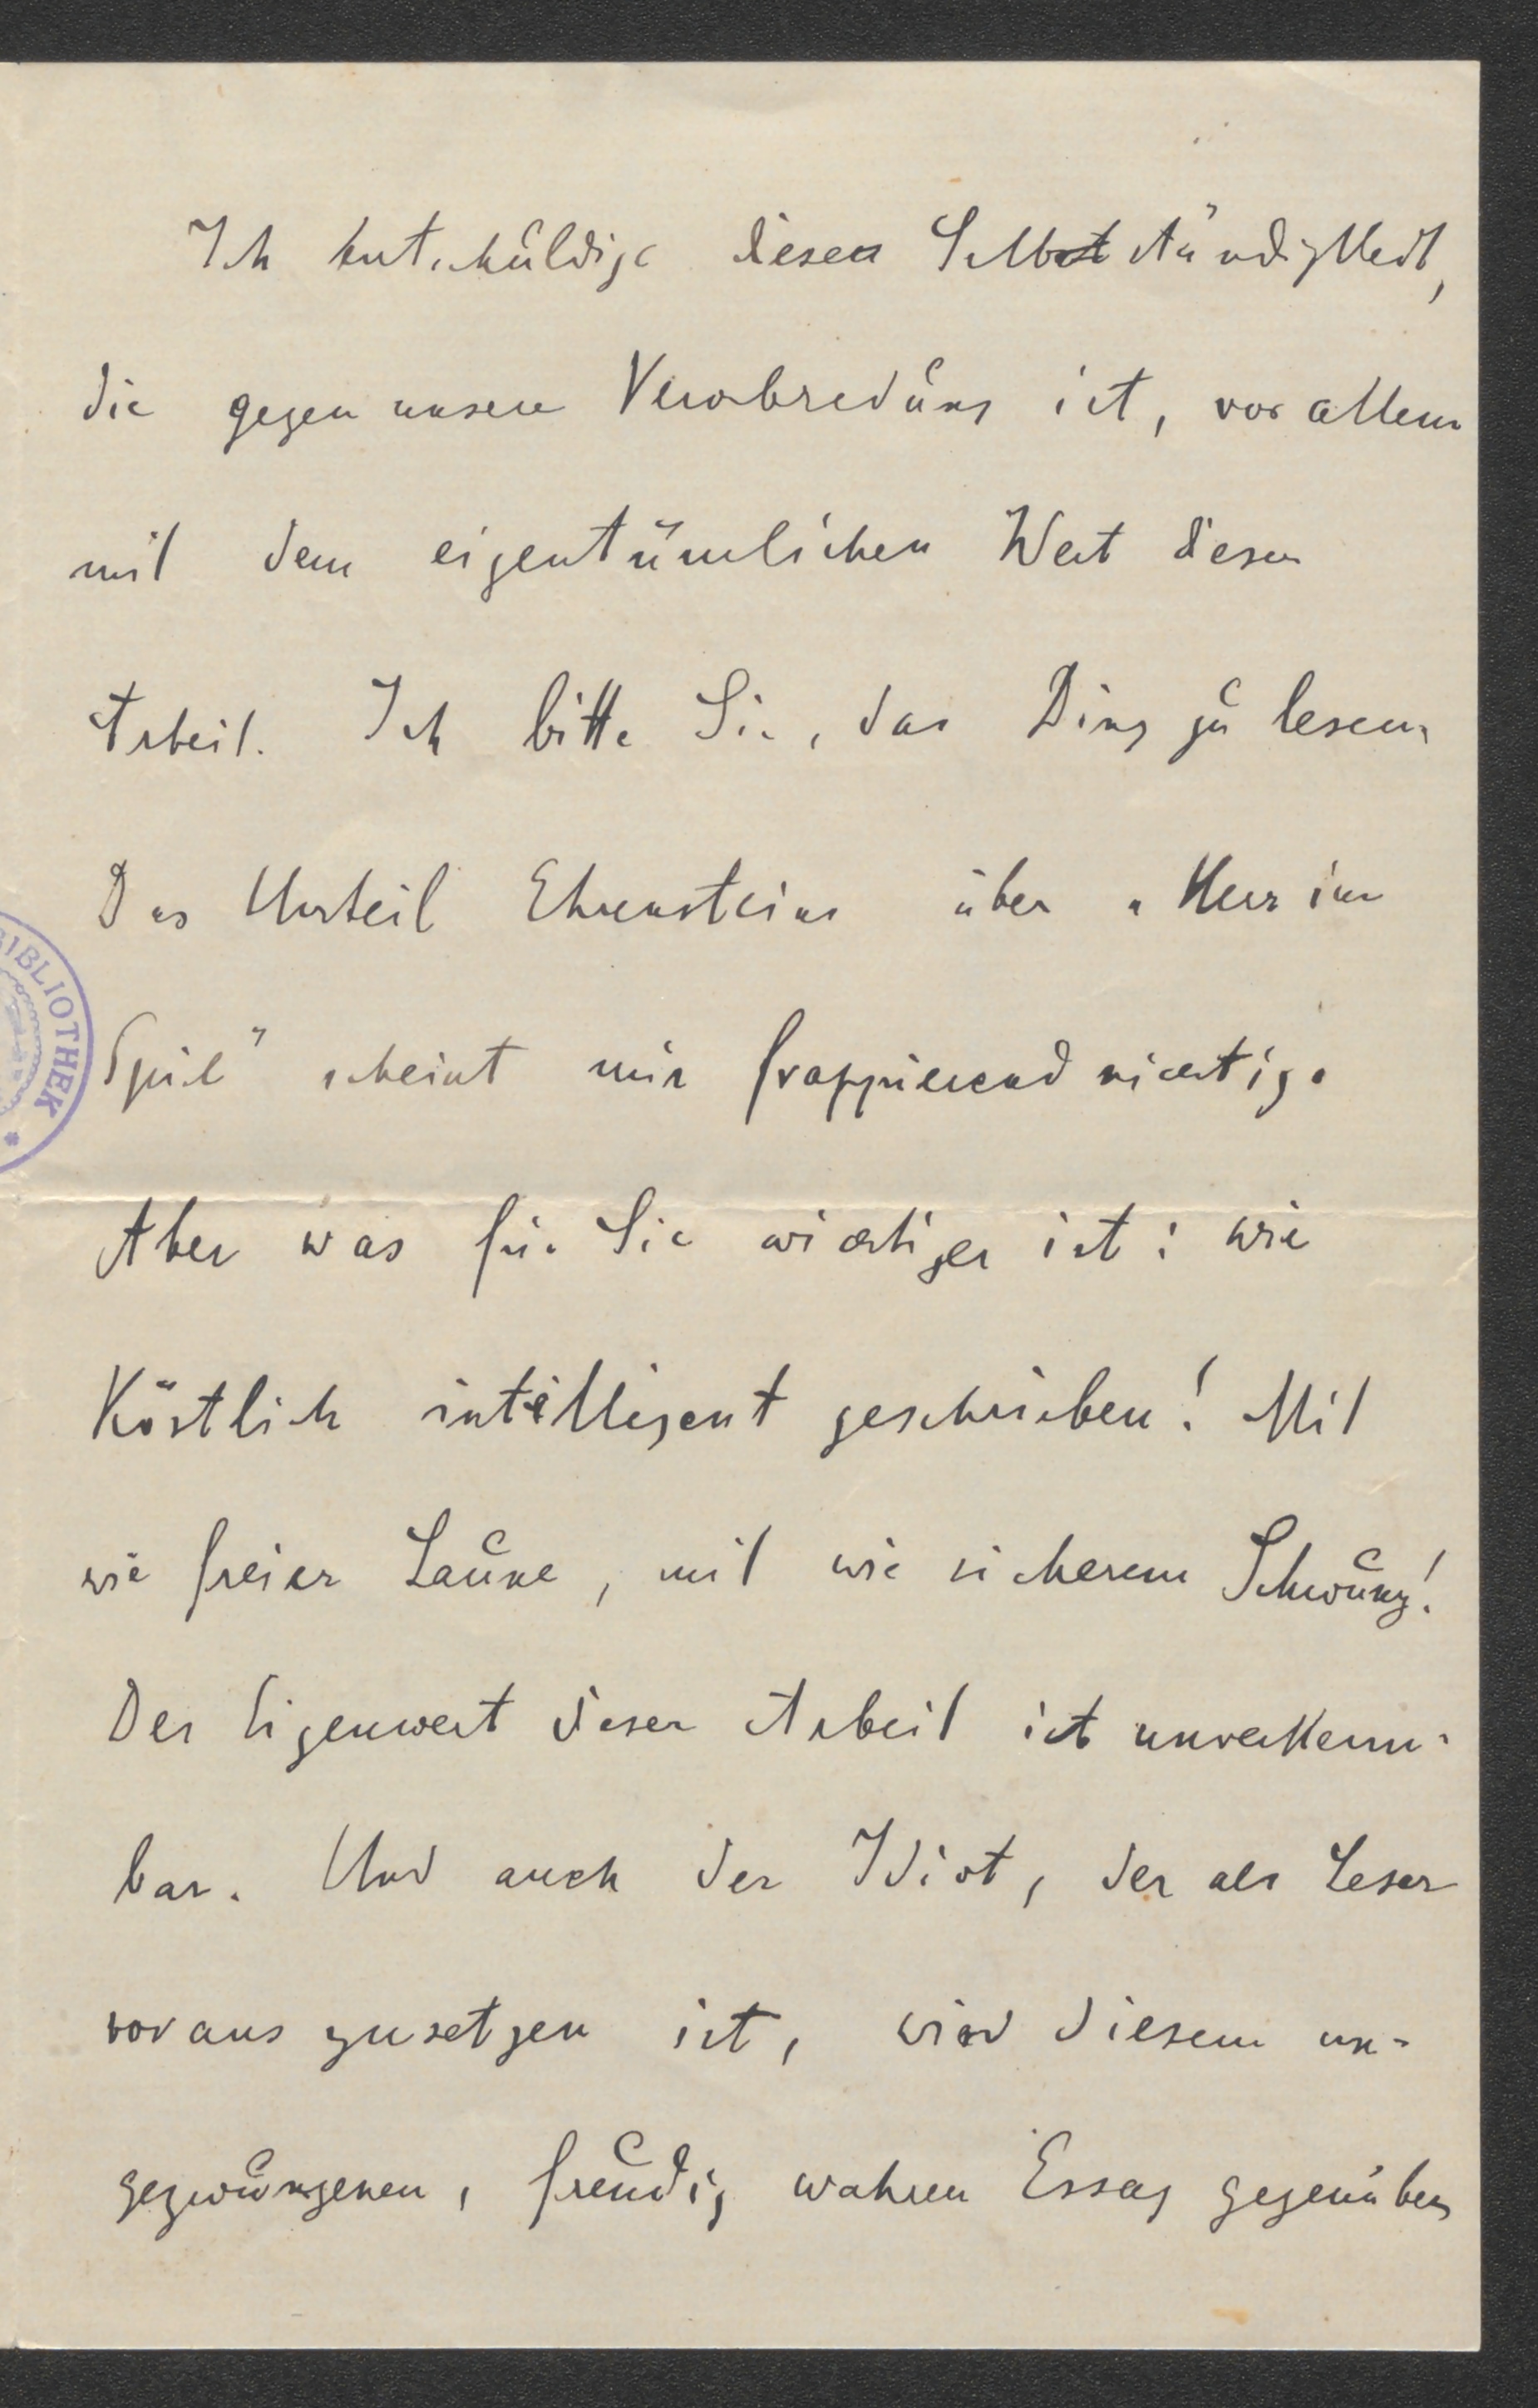 Ich entschuldige diese Selbständigkeit,
die gegen unsere Verabredung ist, vor allem
mit dem eigentümlichen Wert dieser
Arbeit. Ich bitte Sie, das Ding zu lesen.
Das Urteil Ehrensteins über „Herr im
Spiel" scheint mir frappierend richtig.
Aber was für Sie wichtiger ist: wie
köstlich intelligent geschrieben! Mit
wie freier Laune, mit wie sicherem Schwung!
Der Eigenwert dieser Arbeit ist unverkenn-
bar. Und auch der Idiot, der als Leser
vorauszusetzen ist, wird diesem un-
gezwungenen, freudig wahren Essay gegenüber
BIBLIOTHEK